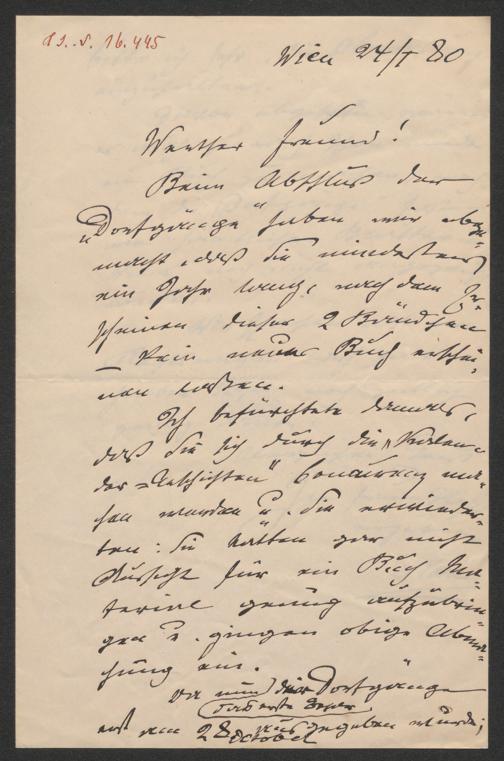 I.N. 16.445
Wien 24/I 80
Werther Freund!
Beim Abschluß der
„Dorfgänge" haben wir abge=
macht, daß Sie mindestens
ein Jahr lang, nach dem Er=
scheinen dieser 2 Bändchen
– kein neues Buch erschei=
nen lassen.
Ich befürchtete damals,
daß Sie sich durch die „Kalen=
der=Geschichten" Concurrenz ma=
chen würden u. Sie erwieder=
ten: Sie hätten gar nicht
Aussicht für ein Buch Ma=
terial genug aufzubrin=
gen u. gingen obige Abma=
chung ein.
Da nun die „Dorfgänge
das erste
erst am 28 October ausgegeben wurde,